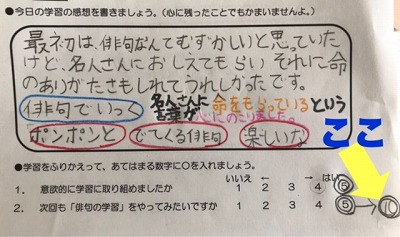 ●今日の学習の感想を書きましょう。(心に残ったことでもかまいませんよ。)
最初は、俳句なんてむずかしいと思っていた
けど、名人さんにおしえてもらいそれに命
のありがたさもしれてうれしかったです。
俳句でいっく 名人さんに 命をもらっている という
言葉が 心にのこりました。
ポンポンと でてくる俳句 楽しいな
ここ
●学習をふりかえって、あてはまる数字に○を入れましょう。
いいえ ← → はい
1. 意欲的に学習に取り組めましたか 1 2 3 4 5
2. 次回も「俳句の学習」をやってみたいですか 1 2 3 4 5 10